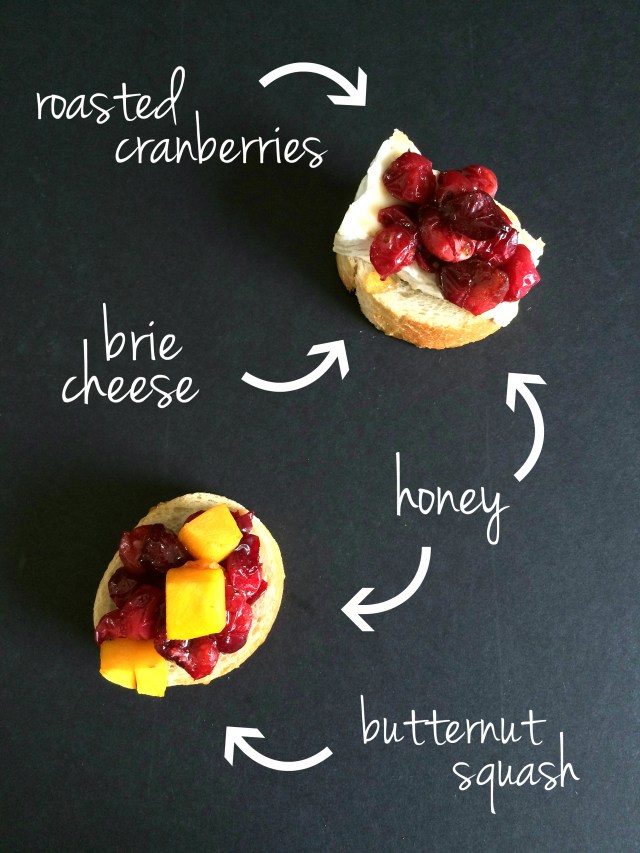 roasted
cranberries
brie
cheese
honey
butternut
squash